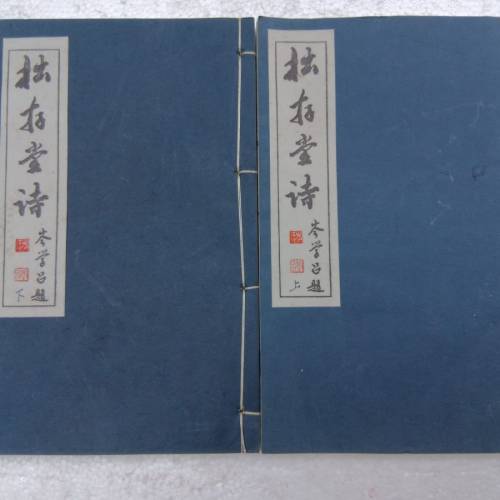 拙存堂诗
岑学吕题
上
拙存堂诗
岑学吕题
下